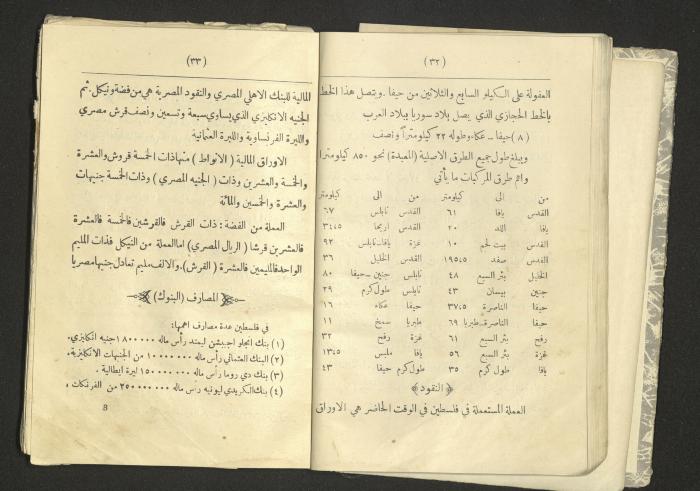 (٣٢)
العفولة على الكيلو السابع والثلاثين من حيفا . ويتصل هذا الخط
بالخط الحجازي الذي يصل بلاد سوريا ببلاد العرب
(٨) حيفا ـ عكاء وطوله ٢٢ كيلومتراً ونصف
ويبلغ طول جميع الطرق الاصلية (المعبدة) نحو ٨٥٠ كيلومترا
واهم طرق المركبات ما يأتي
من الى كيلومتر من الى كيلومتر
القدس يافا ٦١ القدس نابلس ٦٧
يافا اللد ٢٠ القدس اريحا ٣٤،٥
القدس بيت لحم ١٠ غزة يافا ـ نابلس ٩٢
القدس صفد ١٩٥،٥ القدس الخليل ٣٦
الخليل بئر السبع ٤٨ نابلس جنين ـ حيفا ٨٠
جنين بيسان ٤٣ نابلس طول كرم ٢٩
حيفا الناصرة ٣٧،٥ حيفا عكاء ١٦
حيفا الناصرة ـ طبريا ٦٩ طبريا سمخ ١١
رفح بئر السبع ٦١ غزة رفح ٣٢
غزة بئر السبع ٥٦ يافا ملبس ١٣،٥
يافا طول كرم ٣٥ طول كرم حيفا ٤٣
﴿ النقود ﴾
العملة المستعملة في فلسطين في الوقت الحاضر هي الاوراق
(٣٣)
المالية للبنك الاهلي المصري والنقود المصرية هي من فضة ونيكل . ثم
الجنيه الانكليزي الذي يساوي سبعة وتسعين ونصف قرش مصري
والليرة الفرنساوية والليرة العثمانية
الاوراق المالية ( الانواط ) منها ذات الخمسة قروش والعشرة
والخمسة والعشرين وذات ( الجنيه المصري ) وذات الخمسة جنيهات
والعشرة والخمسين والمائة
العملة من الفضة : ذات القرش فالقرشين فالخمسة فالعشرة
فالعشرين قرشا ( الريال المصري ) اما العملة من النيكل فذات المليم
الواحد فالمليمين فالعشرة ( القرش ) . والالف مليم تعادل جنيها مصريا
المصارف (البنوك)
في فلسطين عدة مصارف اهمها :
(١) بنك انجلو اجبشن ليمتد رأس ماله ١٨٠٠٠٠٠ جنيه انكليزي .
(٢) البنك العثماني رأس ماله ١٠٠٠٠٠٠٠ من الجنيهات الانكليزية .
(٣) بنك دي روما رأس ماله ١٥٠٠٠٠٠٠٠ ليرة ايطالية .
(٤) بنك الكريدي ليونيه رأس ماله ٢٥٠٠٠٠٠٠٠ من الفرنكات .
8